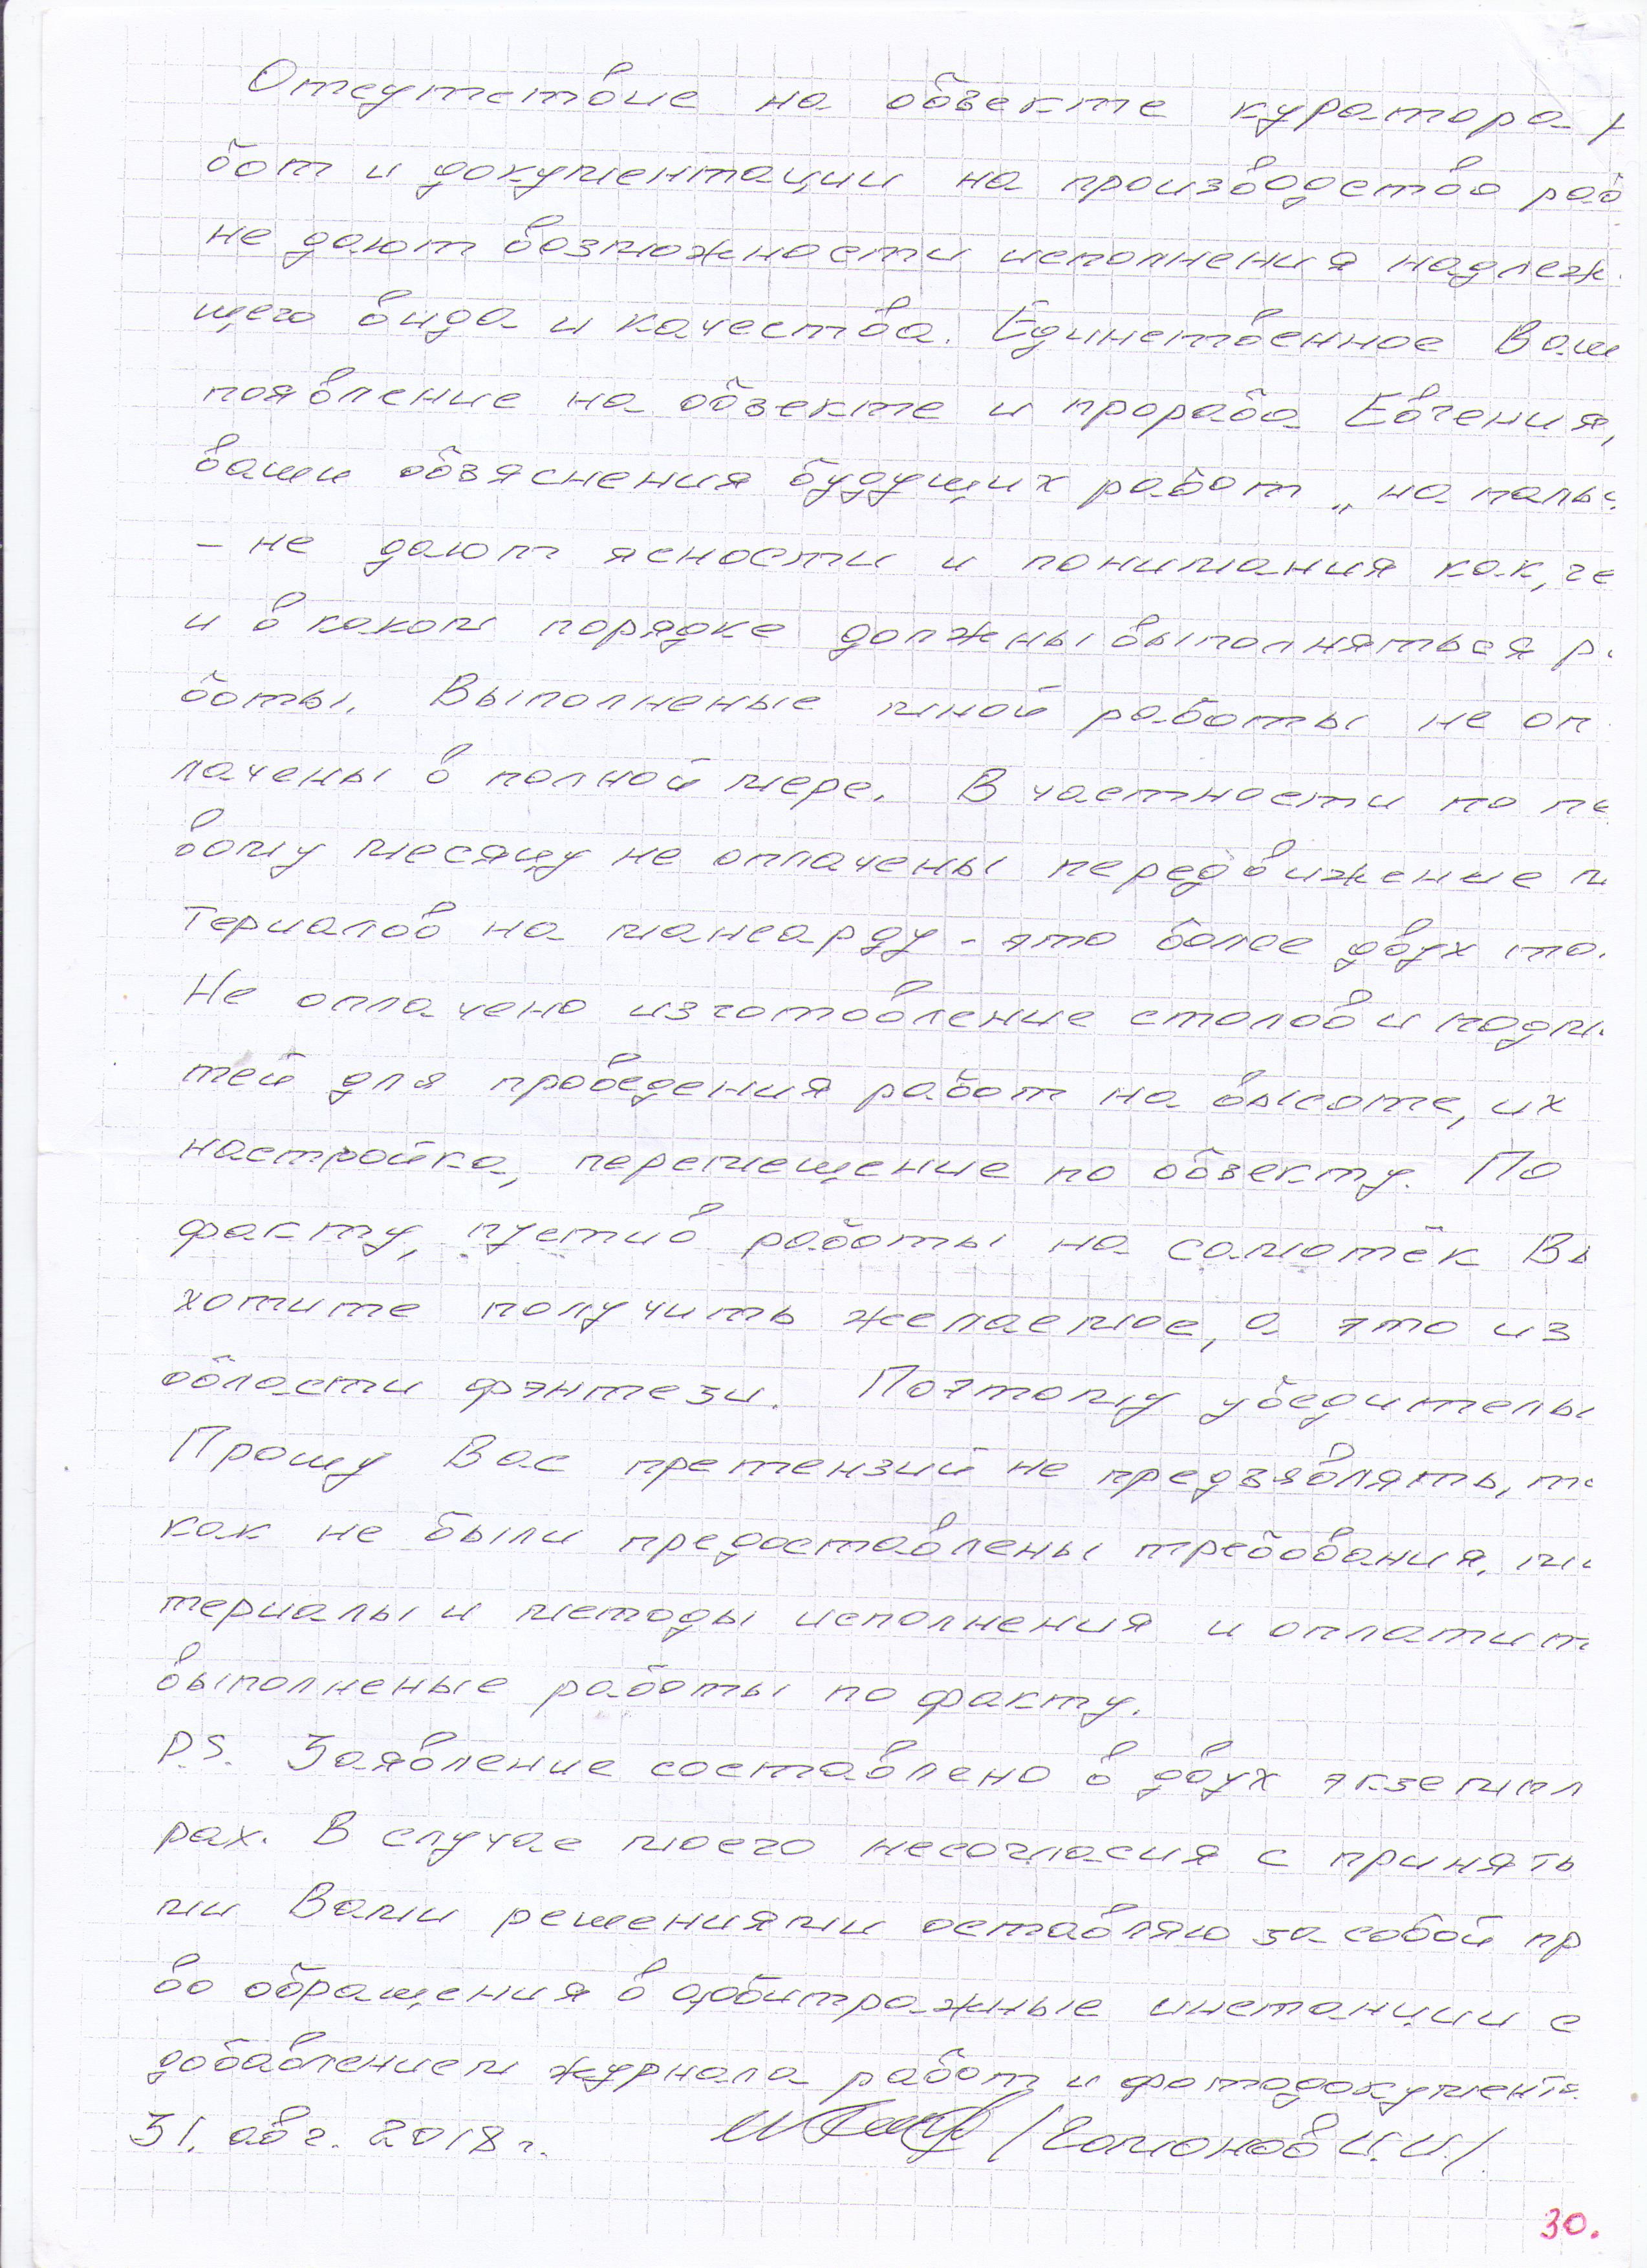 Отсутствие на обьекте куратора р
бот и документации на производство раб
не дают возможности исполнения надлеж
щего вида и качества. Единственное Ваш
появление на обьекте и прораба Евгения,
ваши обьяснения будущих работ „на паль
- не дают ясности и понимания как, че
и в каком порядке должны выполняться р
боты. Выполненые мной работы не оп
лачены в полной мере. В частности по пе
вому месяцу не оплачены передвижение м
териалов на мансарду - это более двух то
Не оплачено изготовление столов и подм
тей для проведения работ на высоте, их
настройка, перемещение по обьекту. По
факту, пустив работы на самотёк Вы
хотите получить желаемое, а это из
области фэнтези. Поэтому убедитель
Прошу Вас претензий не предъявлять, та
как не были предоставлены требования, м
териалы и методы исполнения и оплатит
выполненые работы по факту.
P.S. Заявление составлено в двух экземпл
рах. В случае моего несогласия с принять
ми Вами решениями оставляю за собой пр
во обращения в арбитражные инстанции с
добавлением журнала работ и фотодокумент
31. авг. 2018 г. /Гамонов И.И./
30.